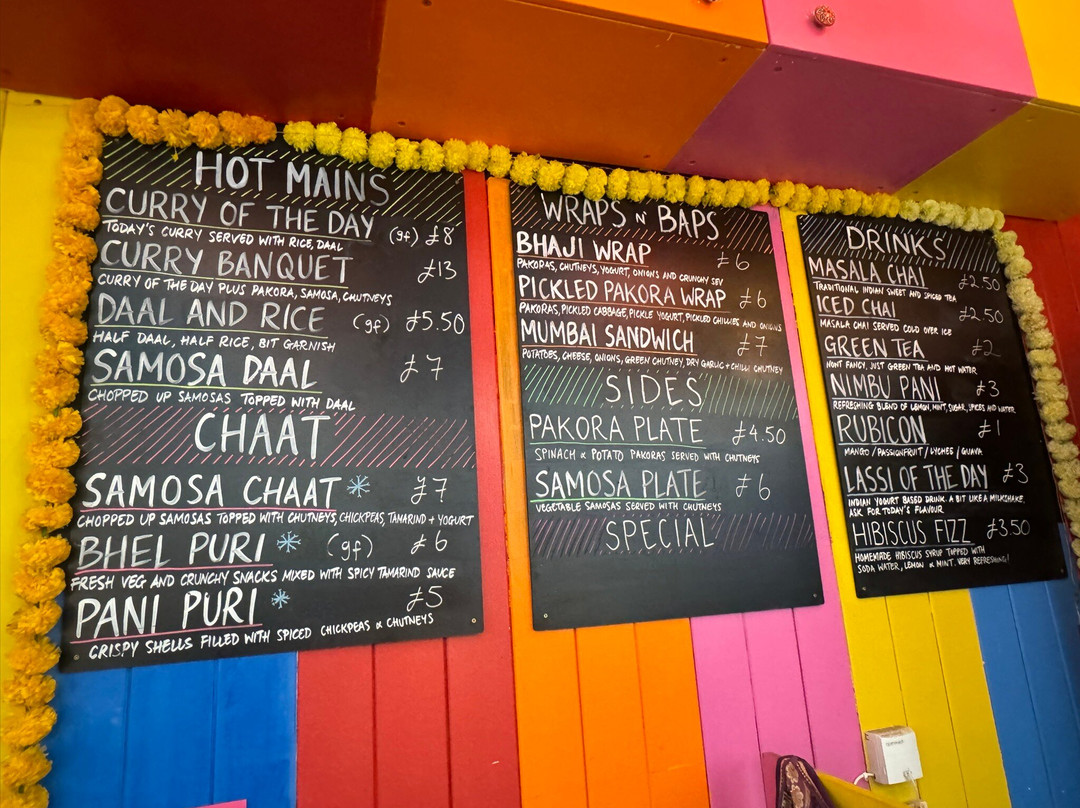 HOT MAINS
CURRY OF THE DAY (gf) £8
TODAY'S CURRY SERVED WITH RICE, DAAL
CURRY BANQUET £13
CURRY OF THE DAY PLUS PAKORA, SAMOSA, CHUTNEYS
DAAL AND RICE (gf) £5.50
HALF DAAL, HALF RICE, BIT GARNISH
SAMOSA DAAL £7
CHOPPED UP SAMOSAS TOPPED WITH DAAL
CHAAT
SAMOSA CHAAT * £7
CHOPPED UP SAMOSAS TOPPED WITH CHUTNEYS, CHICKPEAS, TAMARIND + YOGURT
BHEL PURI * (gf) £6
FRESH VEG AND CRUNCHY SNACKS MIXED WITH SPICY TAMARIND SAUCE
PANI PURI * £5
CRISPY SHELLS FILLED WITH SPICED CHICKPEAS & CHUTNEYS
WRAPS N BAPS
BHAJI WRAP £6
PAKORAS, CHUTNEYS, YOGURT, ONIONS AND CRUNCHY SEV
PICKLED PAKORA WRAP £6
PAKORAS, PICKLED CABBAGE, PICKLE YOGURT, PICKLED CHILLIES AND ONIONS
MUMBAI SANDWICH £7
POTATOES, CHEESE, ONIONS, GREEN CHUTNEY, DRY GARLIC + CHILLI CHUTNEY
SIDES
PAKORA PLATE £4.50
SPINACH & POTATO PAKORAS SERVED WITH CHUTNEYS
SAMOSA PLATE £6
VEGETABLE SAMOSAS SERVED WITH CHUTNEYS
SPECIAL
DRINKS
MASALA CHAI £2.50
TRADITIONAL INDIAN SWEET AND SPICED TEA
ICED CHAI £2.50
MASALA CHAI SERVED COLD OVER ICE
GREEN TEA £2
NOWT FANCY, JUST GREEN TEA AND HOT WATER
NIMBU PANI £3
REFRESHING BLEND OF LEMON, MINT, SUGAR, SPICES AND WATER
RUBICON £1
MANGO / PASSIONFRUIT / LYCHEE / GUAVA
LASSI OF THE DAY £3
INDIAN YOGURT BASED DRINK. A BIT LIKE A MILKSHAKE.
ASK FOR TODAY'S FLAVOUR
HIBISCUS FIZZ £3.50
HOMEMADE HIBISCUS SYRUP TOPPED WITH
SODA WATER, LEMON & MINT. VERY REFRESHING!